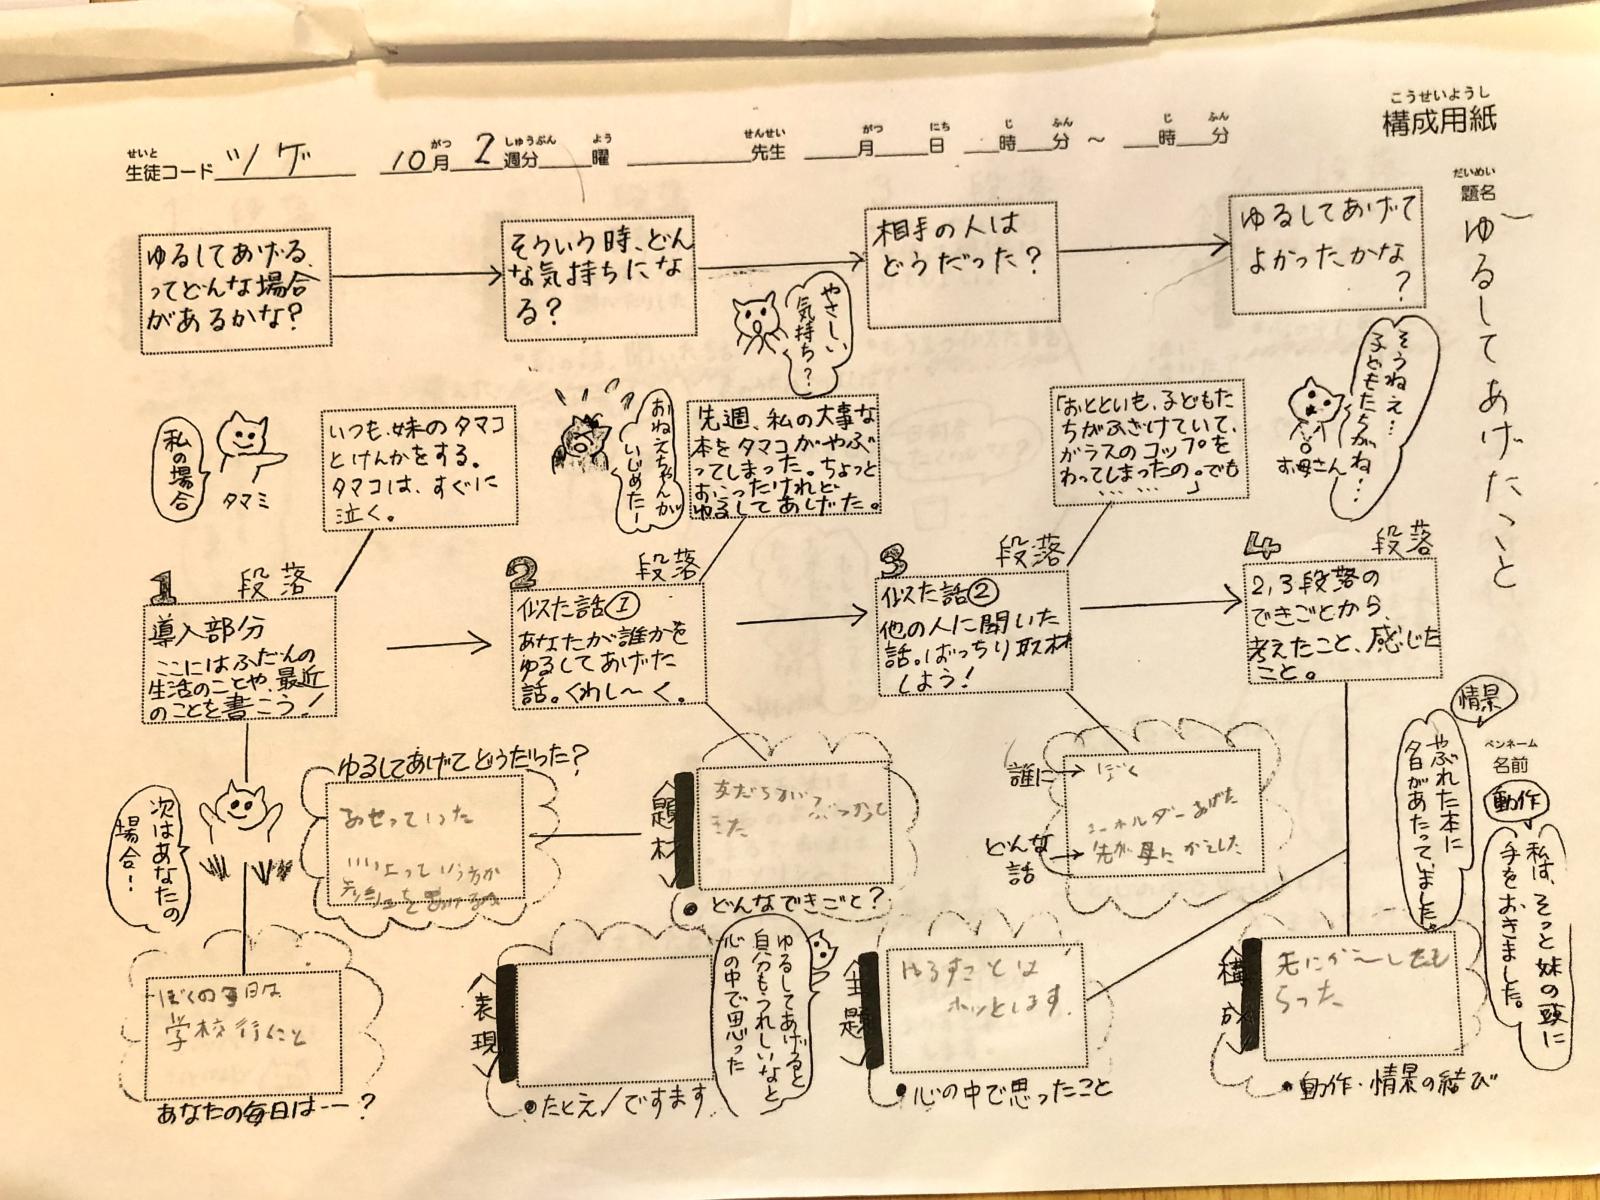 こうせいようし
構成用紙
せいと がつ しゅうぶん よう せんせい がつ にち じ ふん じ ふん
生徒コード ツゲ 10月 2週分 曜 先生 月 日 時 分 〜 時 分
だいめい
題名
ゆるしてあげたこと
ゆるしてあげる、
ってどんな場合
があるかな?
そういう時、どん
な気持ちにな
る?
相手の人は
どうだった?
ゆるしてあげて
よかったかな
?
やさしい
気持ち?
そうねえ…
子どもたちがね…
お母さん
私の場合
タマミ
いつも、妹のタマコ
とけんかをする。
タマコは、すぐに
泣く。
おねえちゃんが
いじめたー
先週、私の大事な
本をタマコがやぶ
ってしまった。ちょっと
おこったけれど
ゆるしてあげた。
「おとといも、子どもた
ちがふざけていて、
ガラスのコップを
わってしまったの。でも
… … …」
1 段落
導入部分
ここにはふだんの
生活のことや、最近
のことを書こう!
2 段落
似た話①
あなたが誰かを
ゆるしてあげた
話。くわし〜く。
3 段落
似た話②
他の人に聞いた
話。ばっちり取材
しよう!
4 段落
2,3段落の
できごとから、
考えたこと、感じた
こと。
次はあなたの
場合!
ゆるしてあげてどうだった?
あせっていった
題材
友だちがぶつかって
きた
どんなできごと?
誰に
ぼく
どんな
話
キーホルダーあげた
先が母にかえした
情景
やぶれた本に
夕日があたっていました。
ペンネーム
名前
動作
私は、そっと妹の頭に
手をおきました。
ぼくの毎日は
学校行くこと
あなたの毎日は…?
表現
たとえ/ですます
ゆるしてあげると
自分もうれしいなと
心の中で思った
主題
ゆるすことは
ホッとします。
心の中で思ったこと
構成
らった
動作・情景の結び